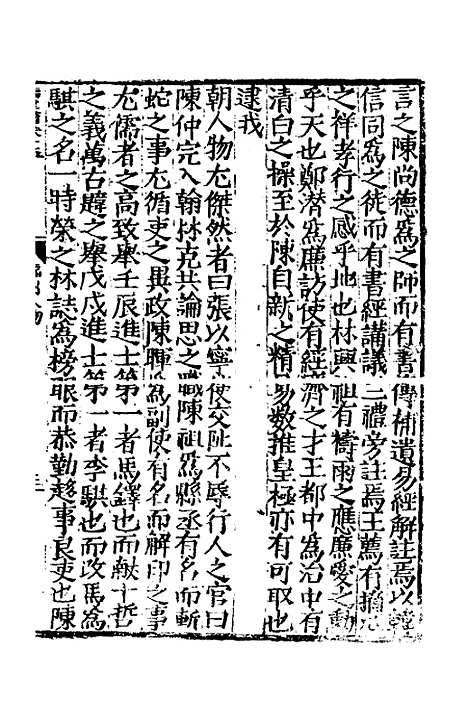 言之陳尚德爲之師而有書傳補遺易經解註焉以韓
信同爲之徒而有書經講議三禮旁註焉王薦有
之祥孝行之感乎地也林興祖有禱雨之應廉愛之動
乎天也鄭潛爲廉訪使有經濟之才王都中爲治中有
清白之操至於陳自新之精易數推皇極亦有可取也
逮我
朝人物尤傑然者曰張以寧使交阯不辱行人之官曰
陳仲完入翰林克共論思之職陳祖爲縣丞有名而斬
蛇之事尤循吏之異政陳暉爲副使有名而解印之事
尤儒者之高致舉壬辰進士第一者馬鐸也而献十哲
之義萬古韙之舉戊戌進士第一者李騏也而改馬爲
騏之名一時榮之林誌爲榜眼而恭勤趍事良吏也陳